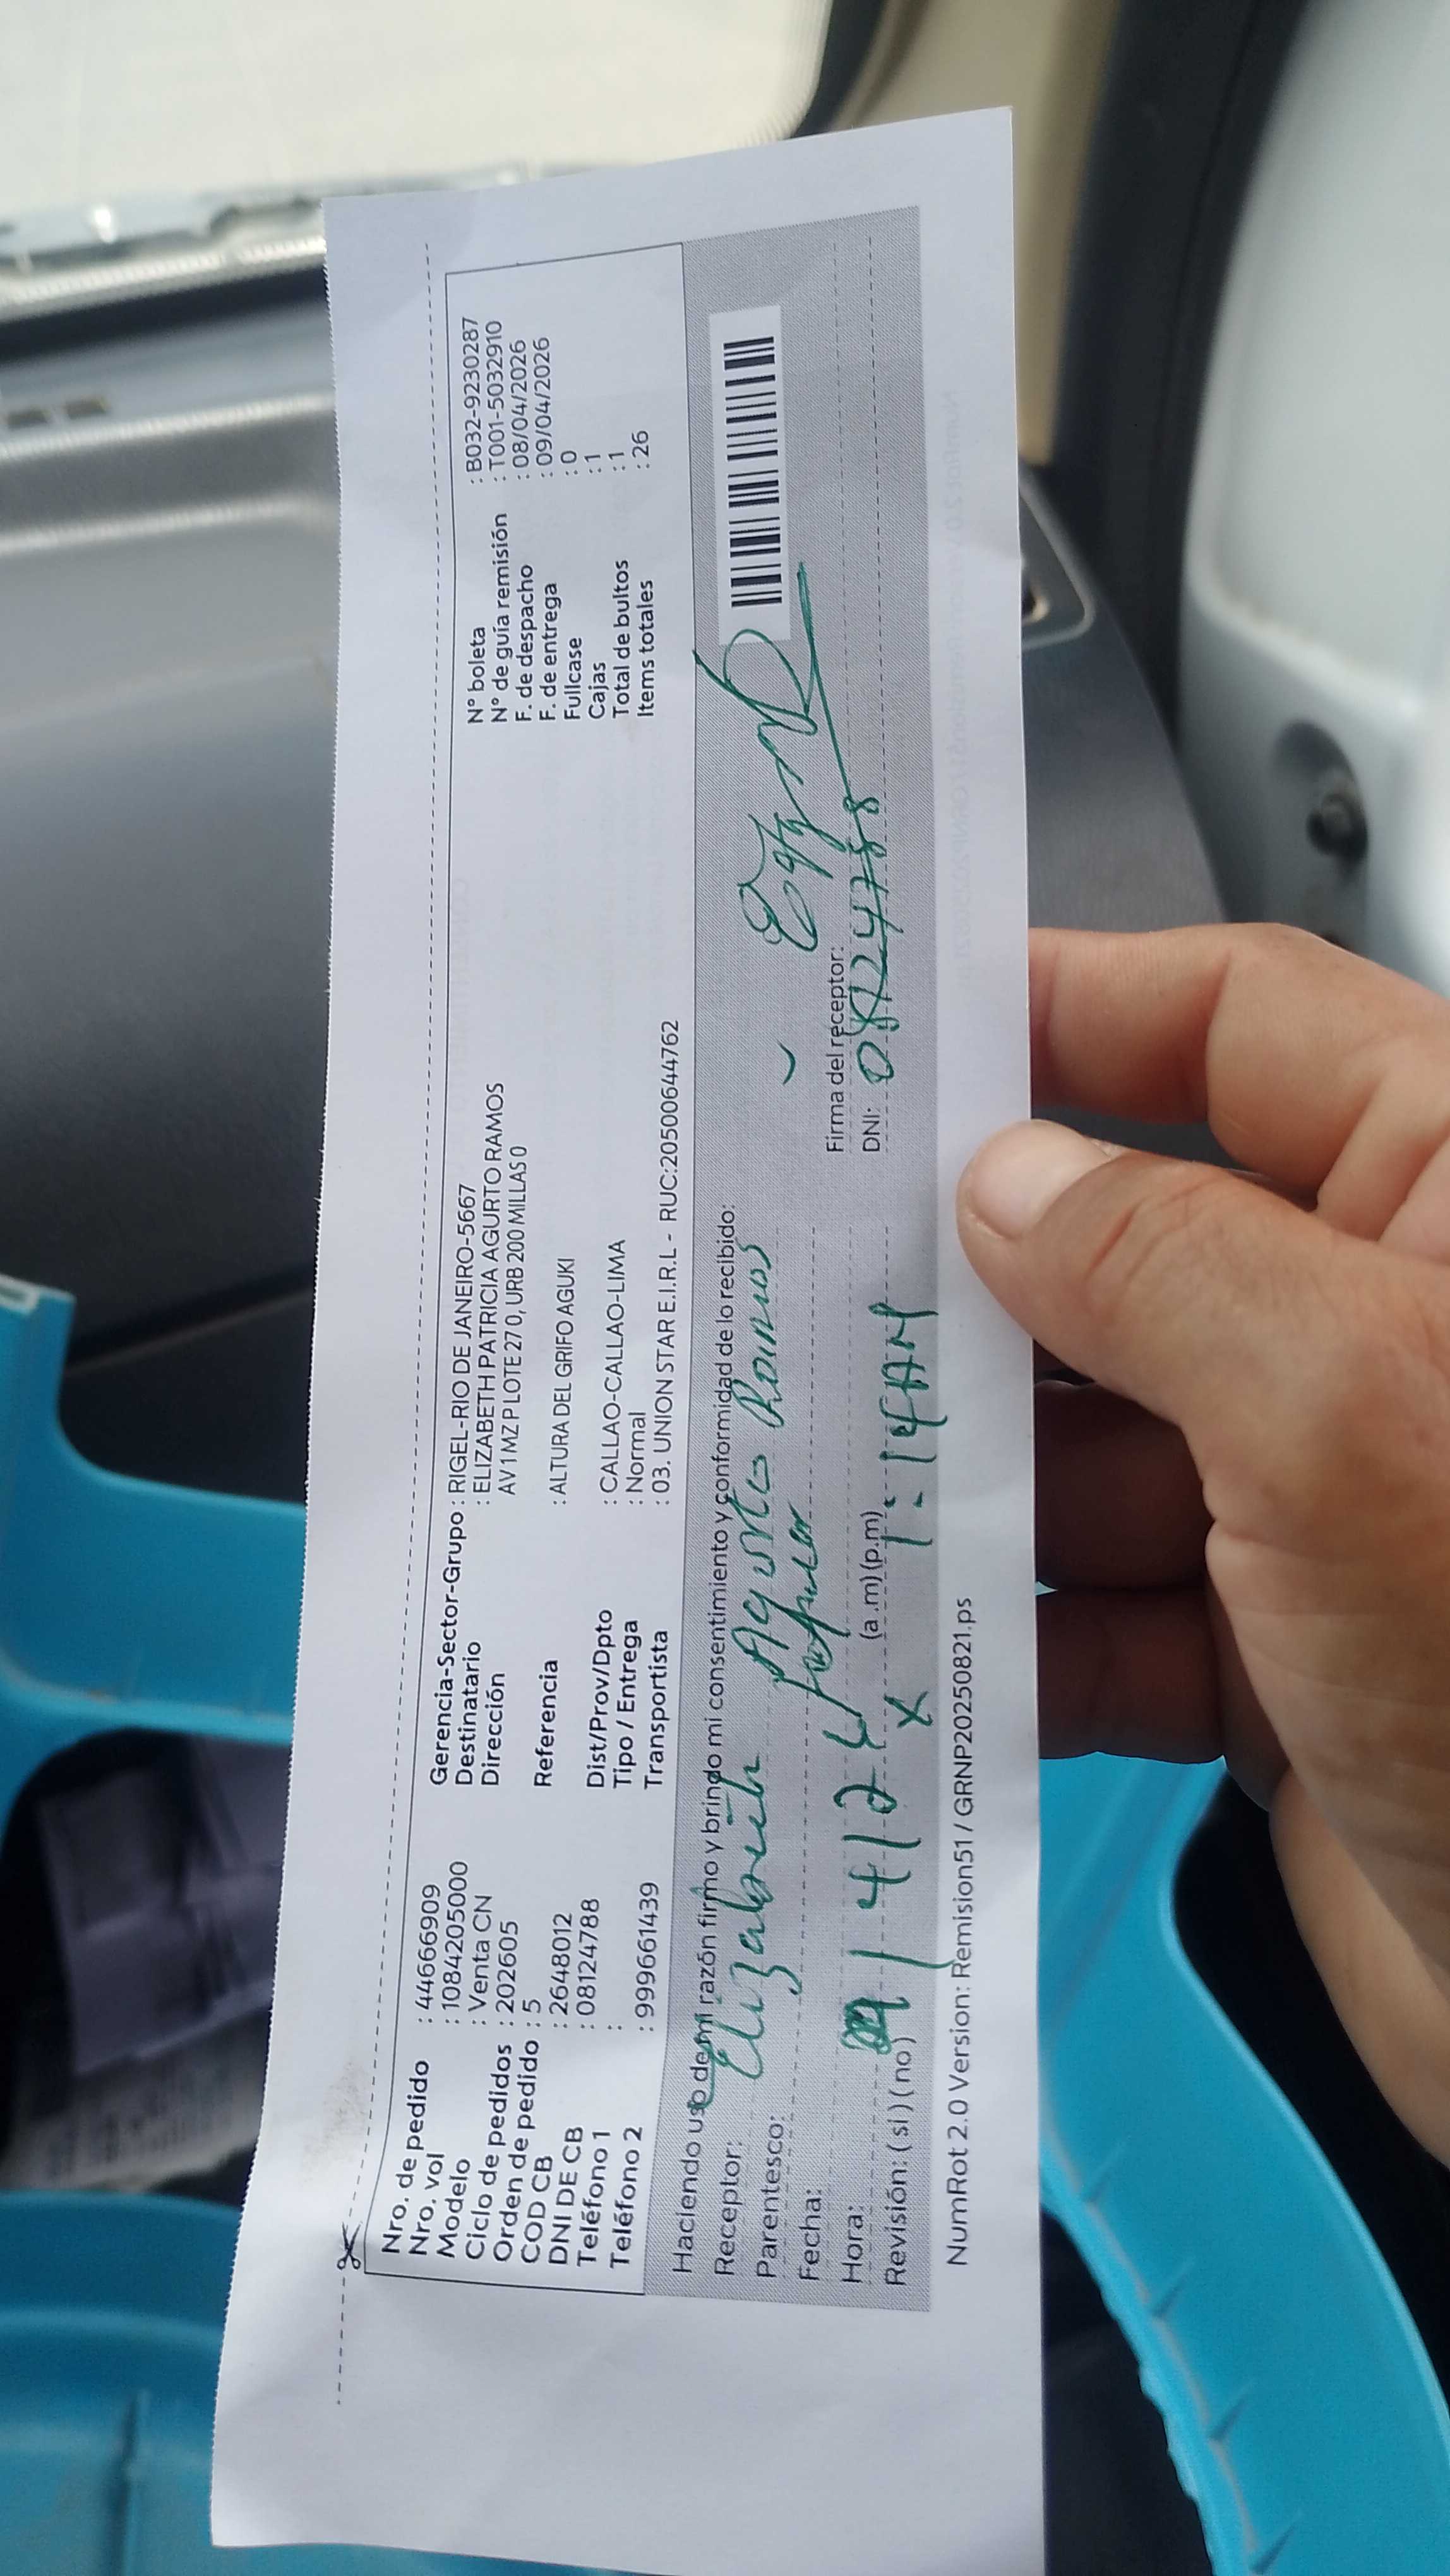 Nro. de pedido : 44666909
Nro. vol : 1084205000
Modelo : Venta CN
Ciclo de pedidos : 202605
Orden de pedido : 5
COD CB : 2648012
DNI DE CB : 08124788
Teléfono 1 :
Teléfono 2 : 999661439
Gerencia-Sector-Grupo : RIGEL-RIO DE JANEIRO-5667
Destinatario : ELIZABETH PATRICIA AGURTO RAMOS
Dirección AV 1 MZ P LOTE 27 0, URB 200 MILLAS 0
Referencia : ALTURA DEL GRIFO AGUKI
Dist/Prov/Dpto : CALLAO-CALLAO-LIMA
Tipo / Entrega : Normal
Transportista : 03. UNION STAR E.I.R.L - RUC:20500644762
N° boleta : B032-9230287
N° de guía remisión : T001-5032910
F. de despacho : 08/04/2026
F. de entrega : 09/04/2026
Fullcase : 0
Cajas : 1
Total de bultos : 1
Items totales : 26
Haciendo uso de mi razón firmo y brindo mi consentimiento y conformidad de lo recibido:
Receptor: Elizabeth Agurto Ramos
Parentesco:
Fecha: 9/4/26
Hora: (a.m) (p.m) 1:14 AM
Revisión: (si) (no) X
Firma del receptor:
DNI: 08124788
NumRot 2.0 Version: Remision51 / GRNP20250821.ps